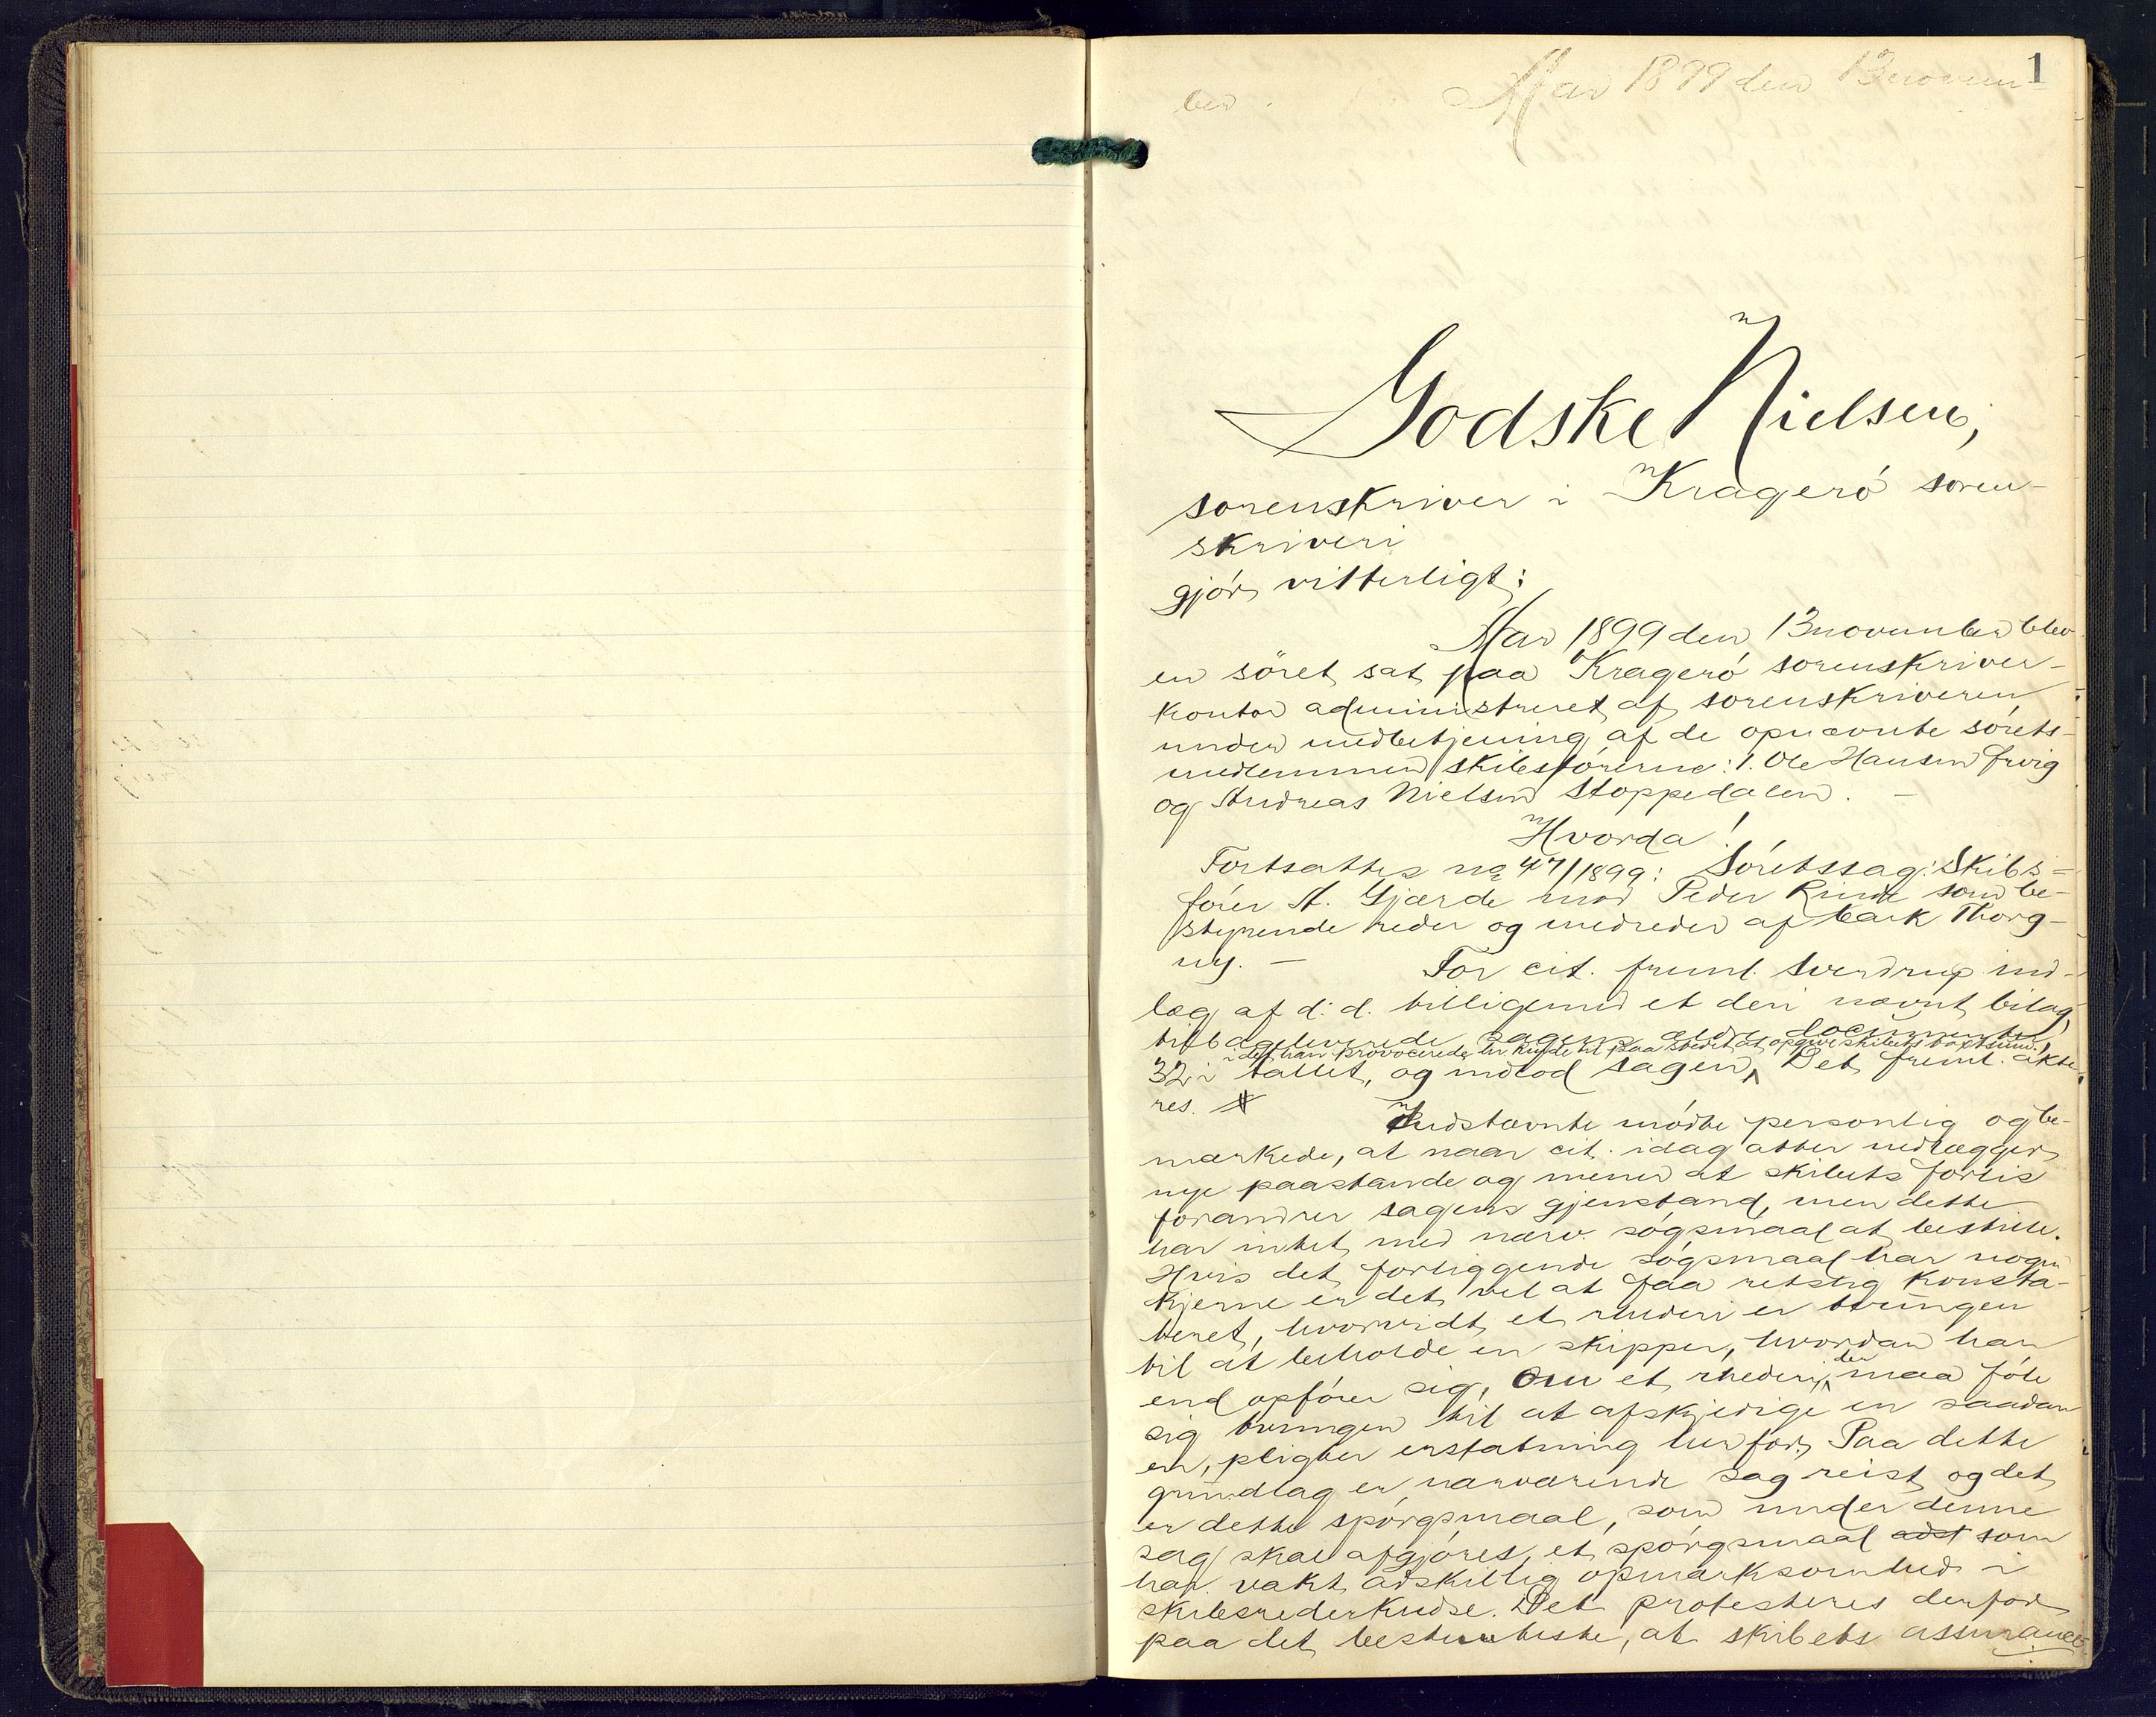 1
Aar 1899 den 13 novem-
ber.
Godske Nielsen,
sorenskriver i Kragerö soren-
skriveri
gjör vitterligt:
Aar 1899 den 13 november blev
en söret sat paa Kragerö sorenskriver-
kontor administreret af sorenskriveren
under medbetjening af de opnævnte sörets-
medlemmer skibsförerne: 1. Ole Hansen Frvig
og Andreas Nielsen Stoppedalen. -
Hvorda!
Fortsattes no 47/1899: Söretssag: Skibs-
förer A. Gjærde mod Peder Rinde som be-
styrende reder og medreder af bark Thorg-
ny. -
For cit. freml. Sverdrup ind-
læg af d: d. tilligemed et deri nævnt bilag,
tilbageleverede sagens ældre documenter
idet han provocerede til paa stedet at opgive skibets
32 i tallet, og indlod sagen. Det freml. akte-
res. #
Indstævnte mödte personlig og be-
mærkede, at naar cit. idag atter nedlægger
nye paastande og mener at skibets forlis
forandrer sagens gjenstand, men dette
har intet med nærv. sögsmaal at bestille.
Hvis det forliggende sögsmaal har nogen
kjerne er det vel at faa retslig konsta-
teret, hvorvidt et rhederi er tvungen
til at beholde en skipper, hvordan han
end opförer sig, Om et rhederi, der maa föle
sig tvungen til at afskjedige en saadan
en, pligter erstatning herfor. Paa dette
grundlag er nærværende sag reist og det
er dette spörgsmaal, som under denne
sag skal afgjöres, et spörgsmaal adst som
har vakt adskillig opmærksomhed i
skibsrederkredse. Det protesteres derfor
paa det bestemteste, at skibets assurance